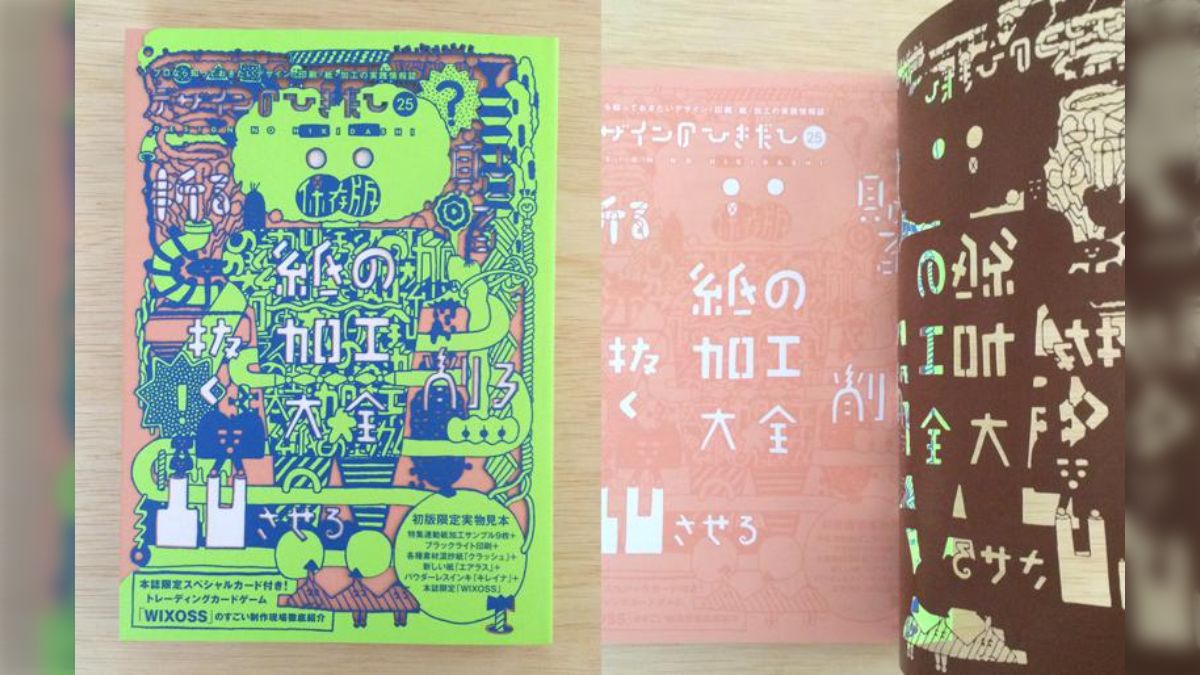 プロなら知っておきたいデザイン・印刷・紙・加工の実践情報誌
デザインのひきだし 25
DESIGN NO HIKIDASHI
保存版
折る
貼る
紙の
加工
大全
抜く
削る
凹凸させる
初版限定実物見本
特集連動紙加工サンプル9枚+
ブラックライト印刷+
各種素材混抄紙「クラッシュ」+
新しい紙「エアラス」+
パウダーレスインキ「キレイナ」+
本誌限定「WIXOSS」
本誌限定スペシャルカード付き!
トレーディングカードゲーム
「WIXOSS」のすごい制作現場徹底紹介
ら知っておきたいデザイン・印刷・紙・加工の実践情報誌
ザインのひきだし 25
NO HIKIDASHI
保存版
折る
紙の
加工
大全
抜く
削
させる